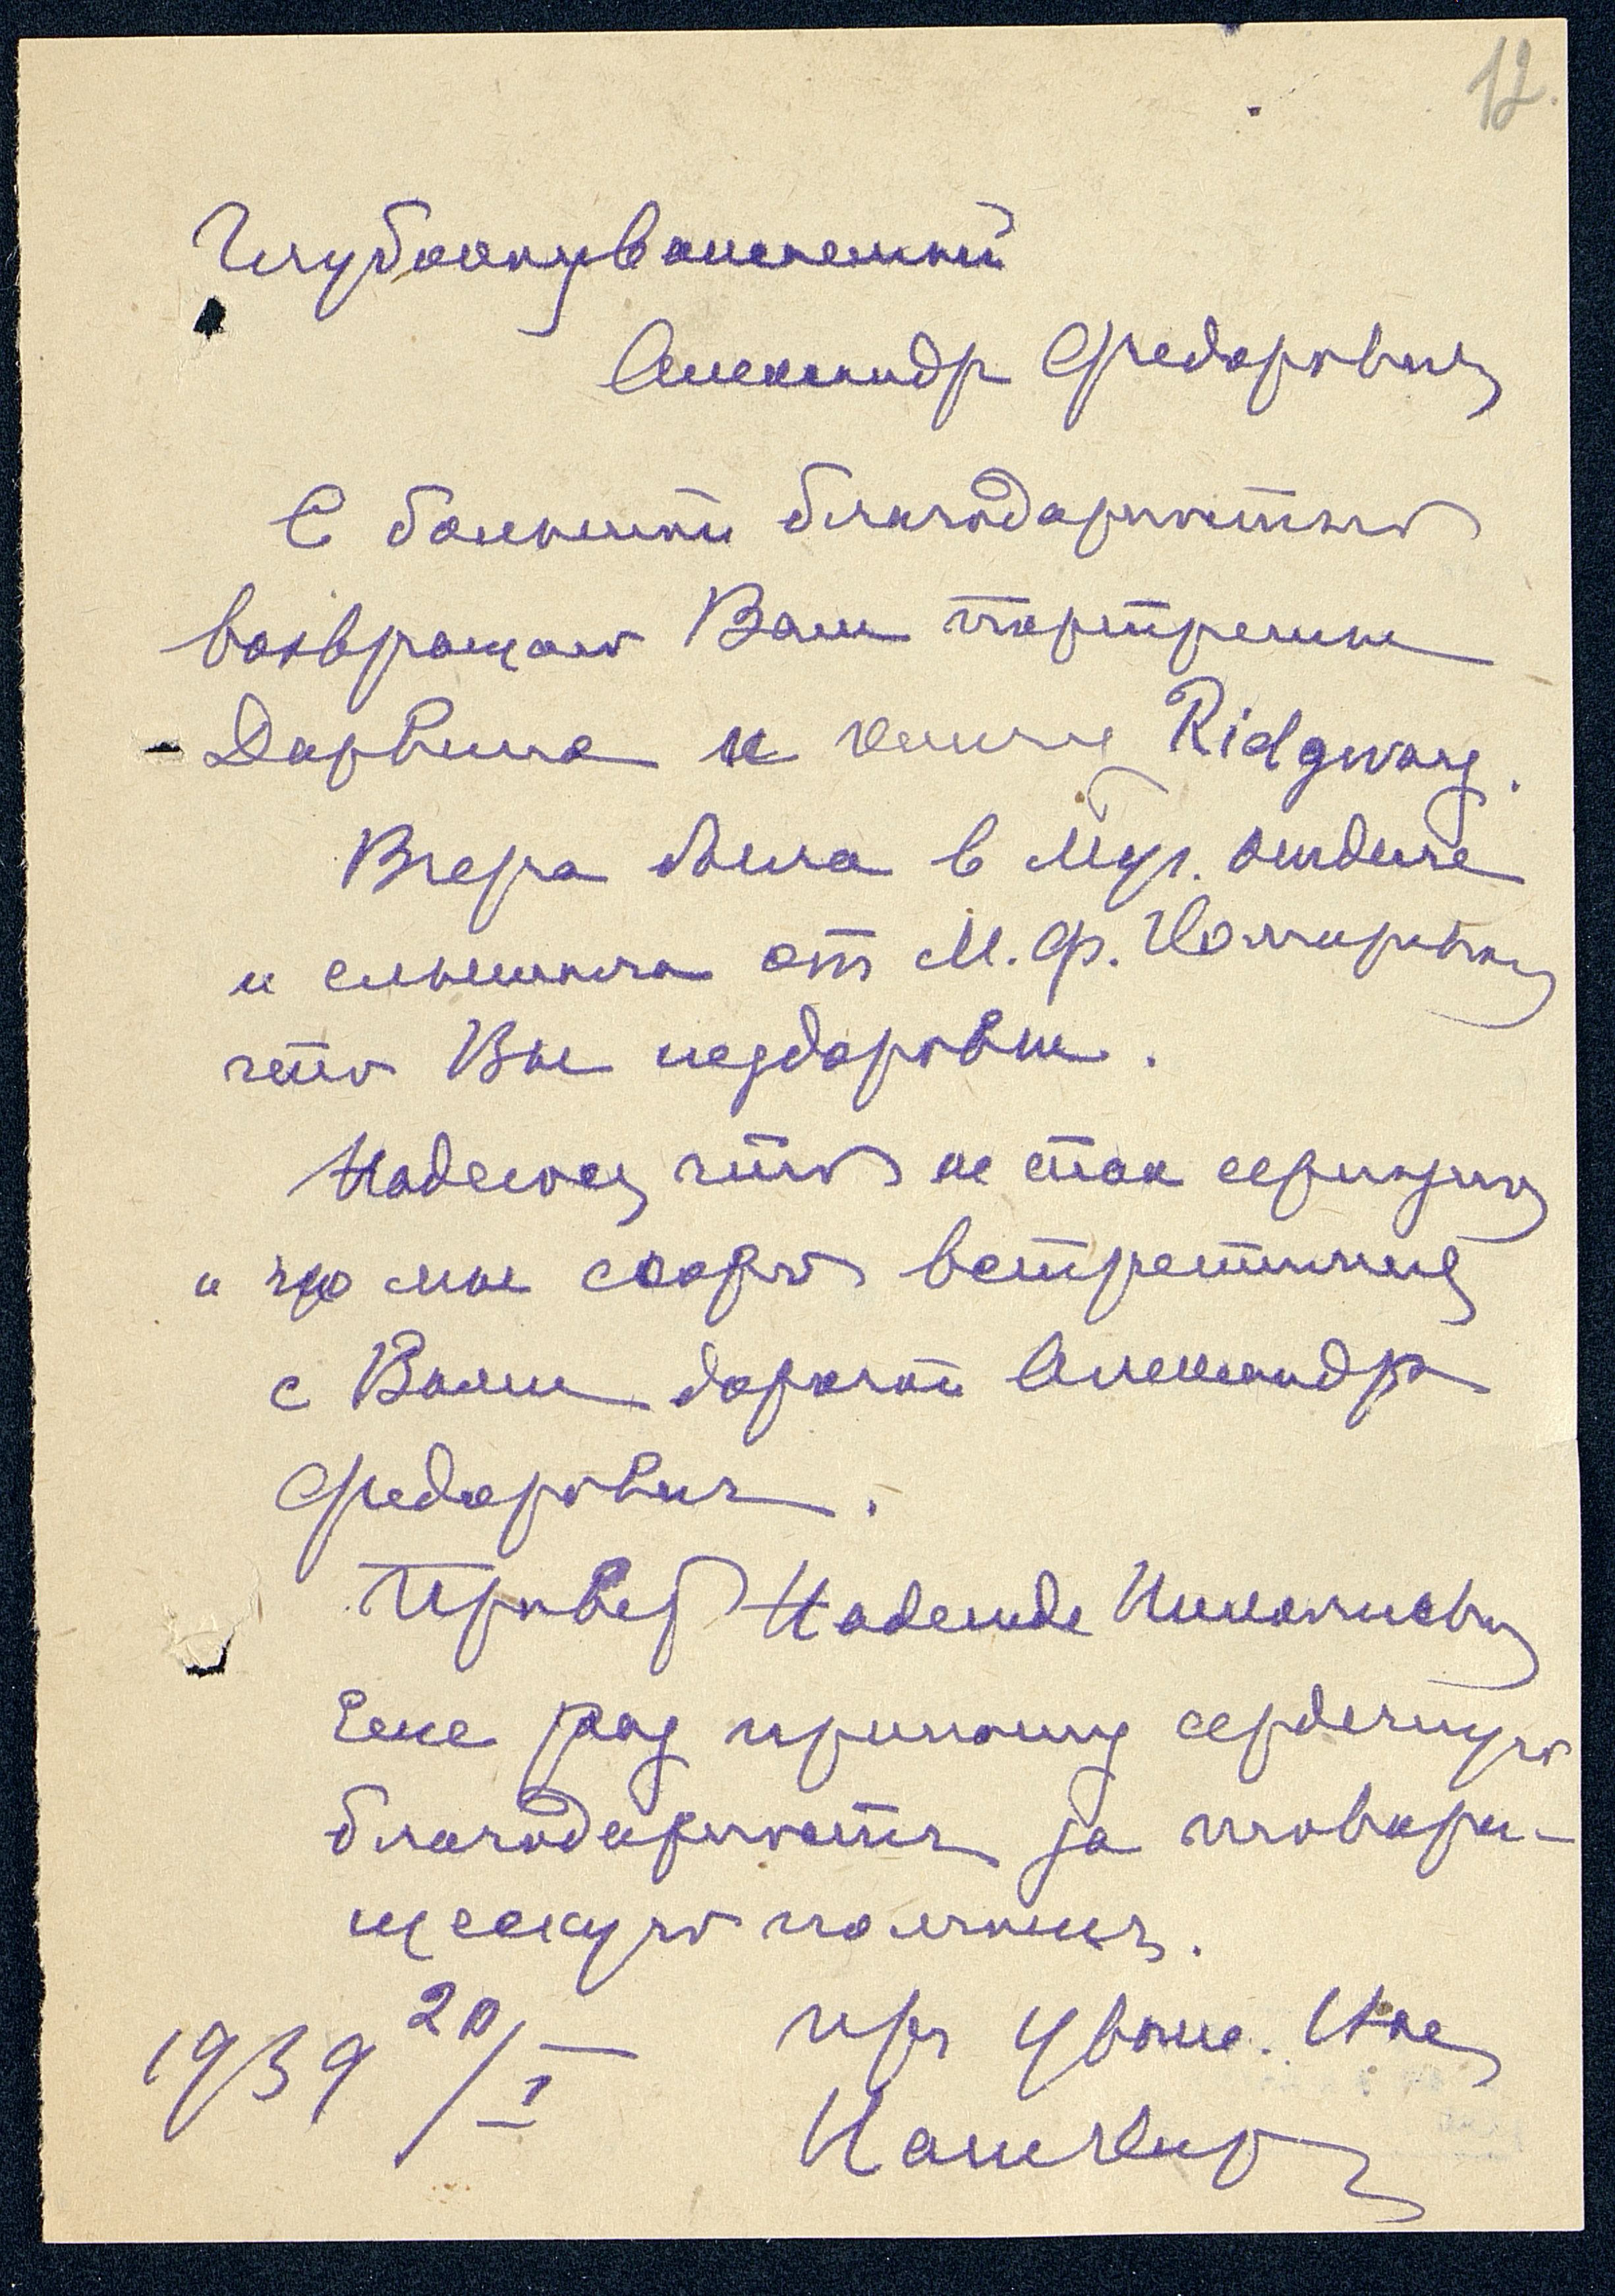 12.
Глубокоуважаемый
Александр Федорович
С большой благодарностью
возвращаю Вам портреты
Дарвина и книгу Ridgway.
Вчера была в Муз. отделе
и слышала от М. Ф.
что Вы нездоровы.
Надеюсь что не так серьезно
и что мы скоро встретимся
с Вами дорогой Александр
Федорович.
Привет Надежде Николаевне
Еще раз приношу сердечную
благодарность за товари-
щескую помощь.
1939 20/I уваж. Вас